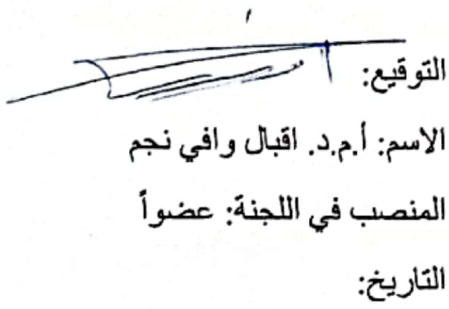 التوقيع:
الاسم: أ.م.د. اقبال وافي نجم
المنصب في اللجنة: عضواً
التاريخ: